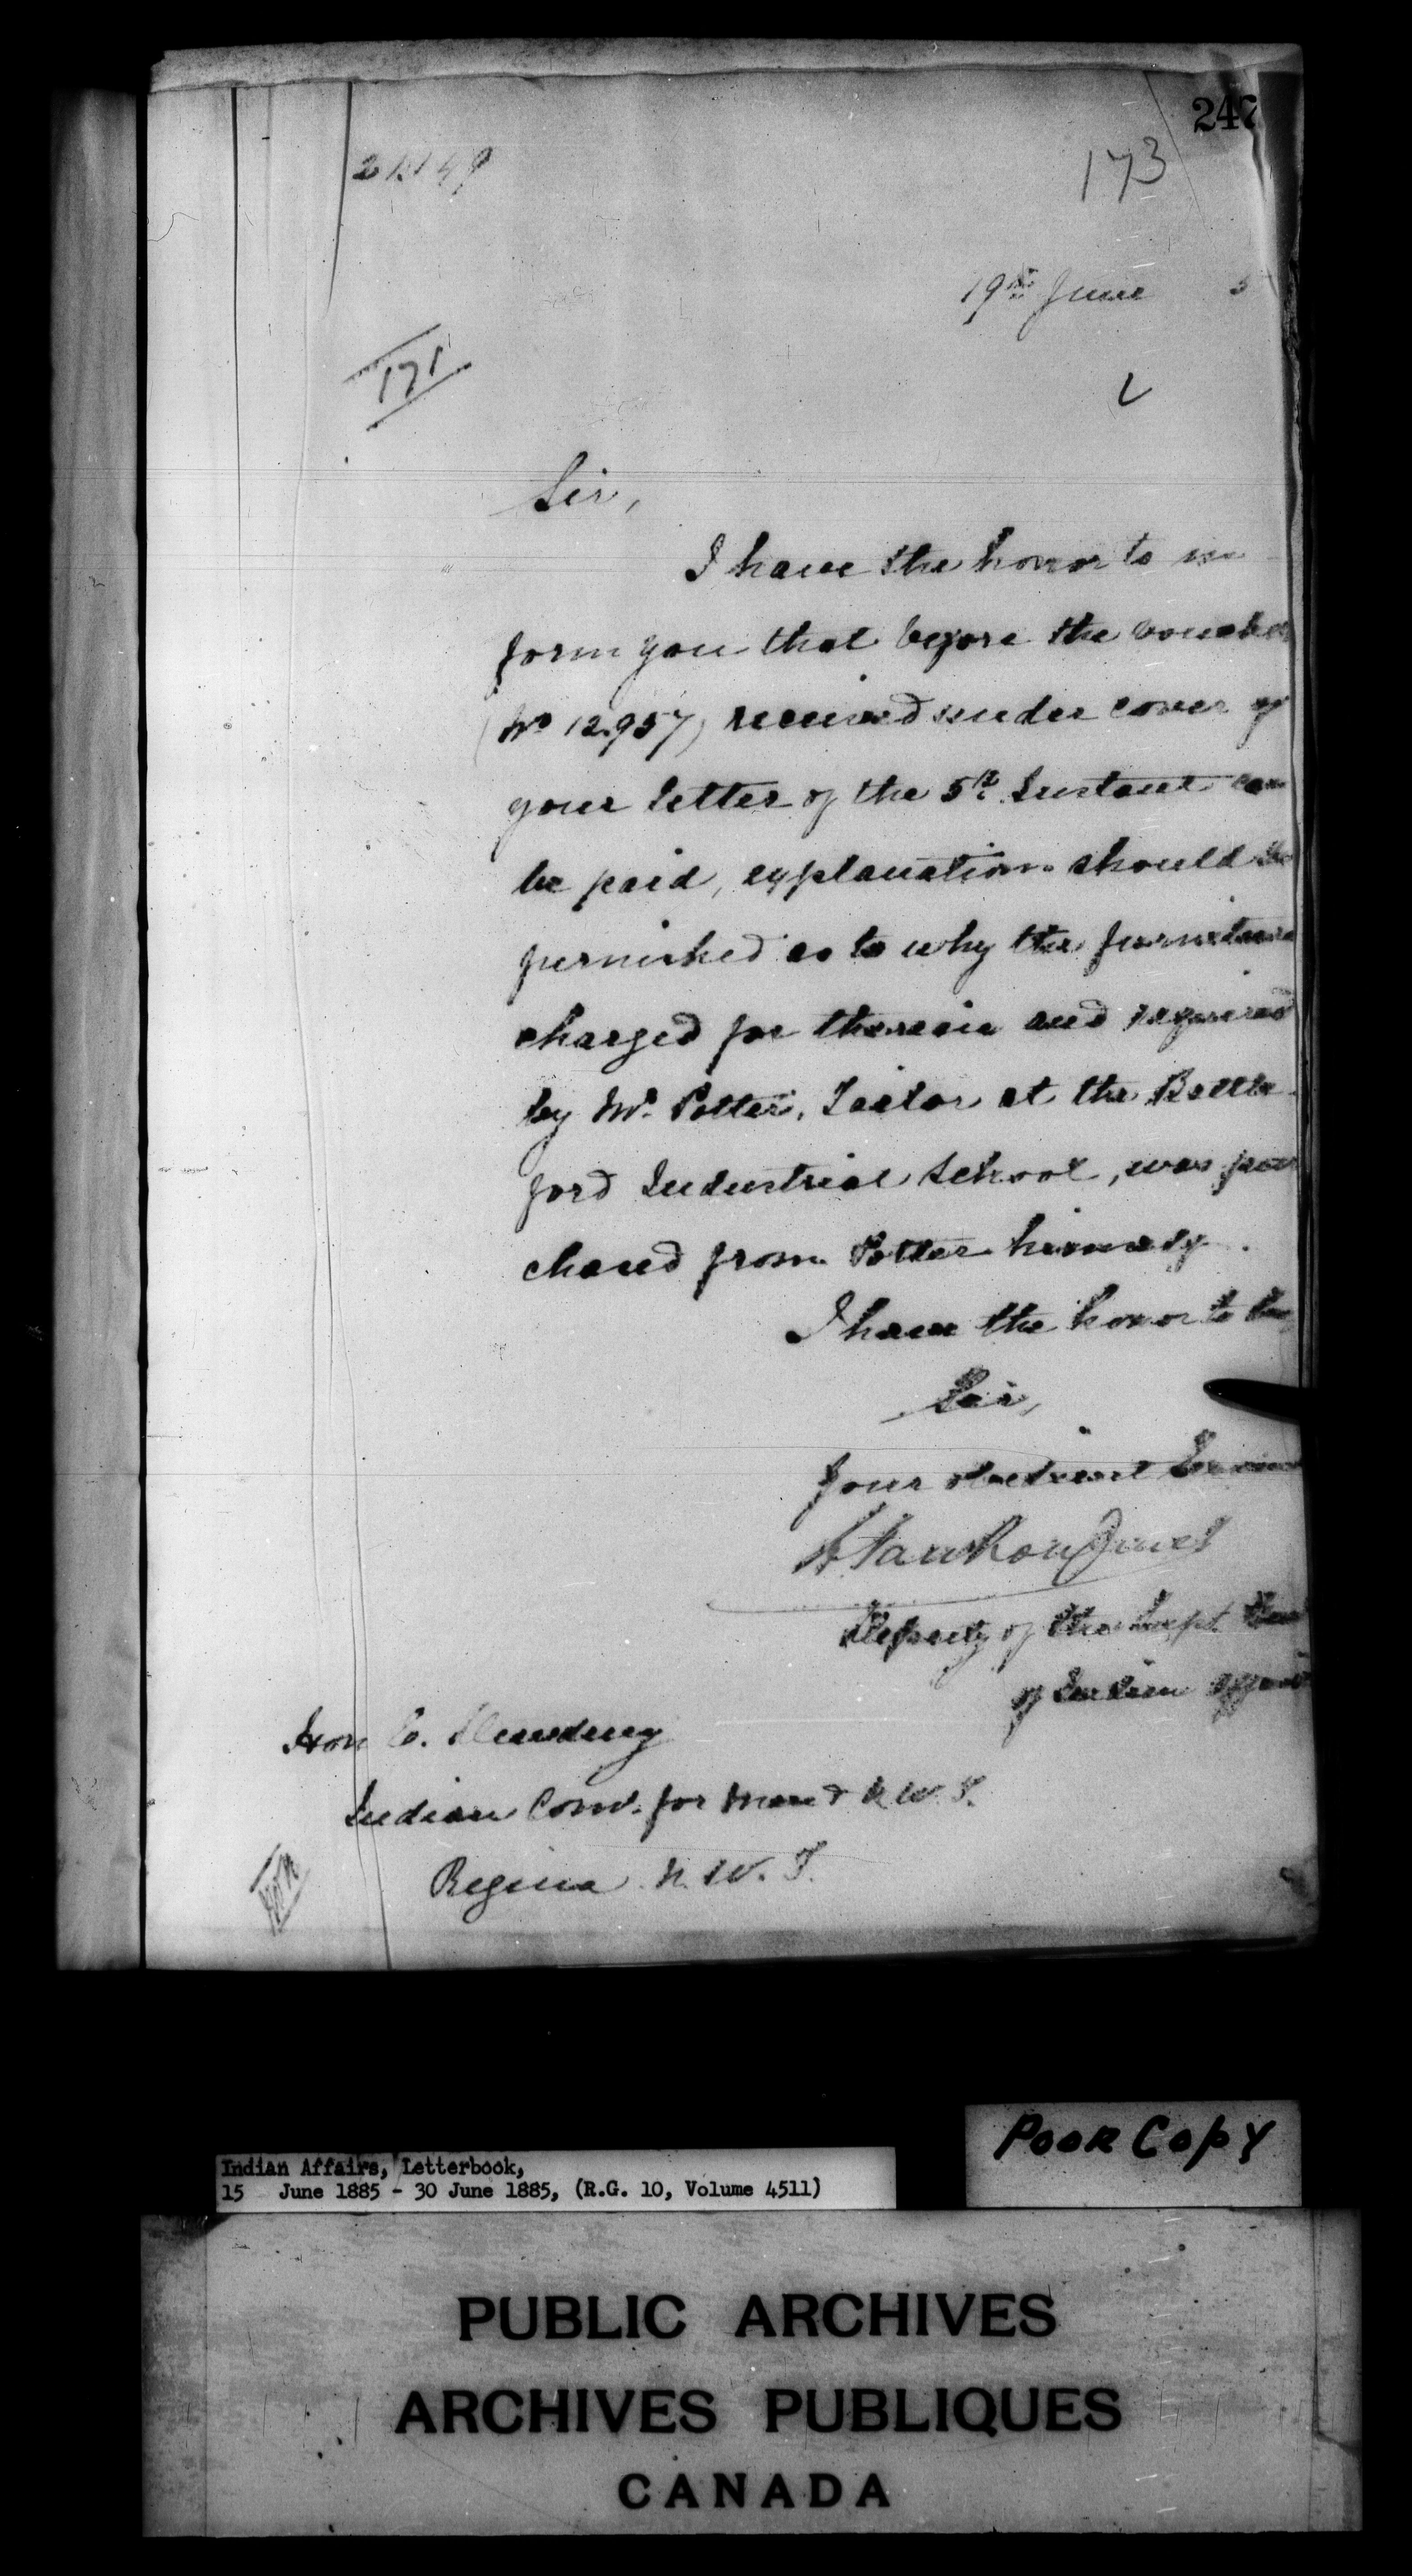 247
173
19th June 5
171
Sir,
I have the honor to in
form you that before the voucher
(No 12.957) received under cover of
your letter of the 5th Instant can
be paid, explanation should be
furnished as to why the furniture
charged for therein and required
by Mr. Potter, Tailor at the Battle
ford Industrial School, was pur
chased from Potter himself.
I have the honor to be
Sir,
Your obedient Servant
Deputy of the Supt Gen
of Indian Affairs
Hon E. Dewdney
Indian Comr. for Man & N.W.T.
Regina N.W.T.
Poor Copy
Indian Affairs, Letterbook,
15 June 1885 - 30 June 1885, (R.G. 10, Volume 4511)
PUBLIC ARCHIVES
ARCHIVES PUBLIQUES
CANADA